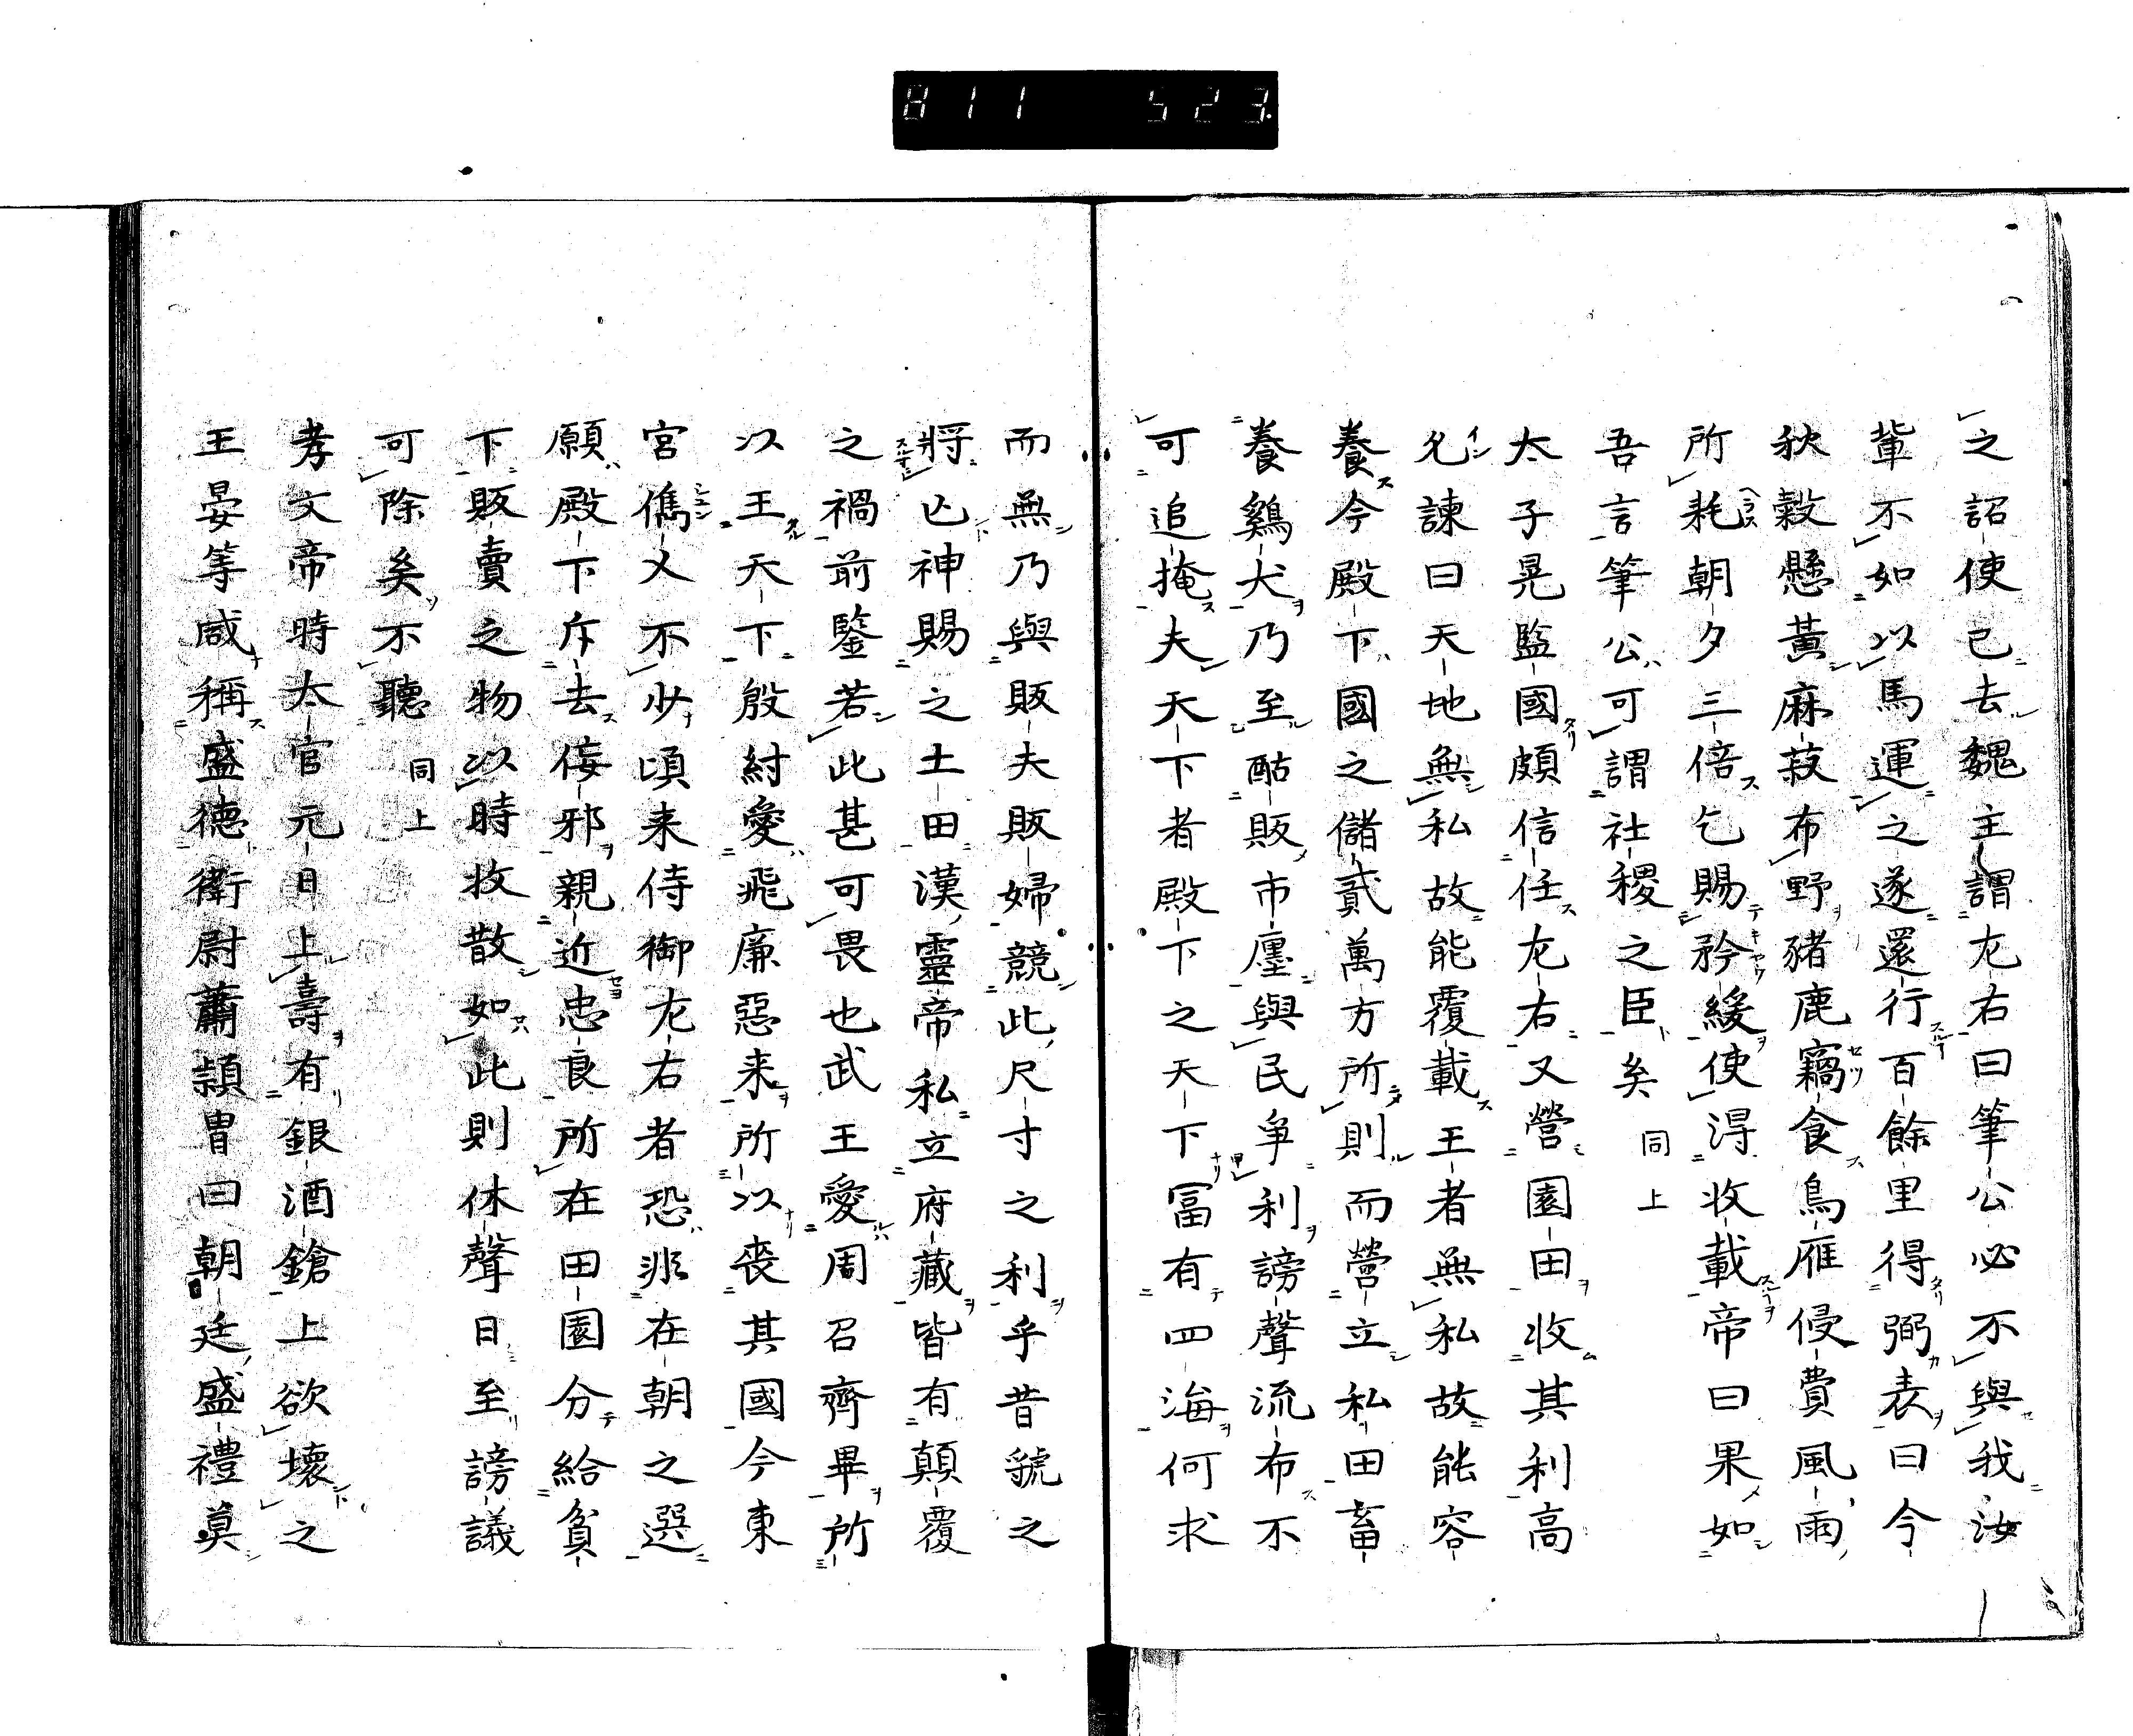 811 523
之詔使已去魏主謂左右曰筆公必不與我汝
輩不如以馬運之遂還行百餘里得弼表曰今
秋穀懸黃麻菽布野豬鹿竊食鳥雁侵費風雨
所耗朝夕三倍乞賜矜緩使得收載帝曰果如
吾言筆公可謂社稷之臣矣 同上
太子晃監國頗信任左右又營園田收其利高
允諫曰天地無私故能覆載王者無私故能容
養今殿下國之儲貳萬方所則而營立私田畜
養鷄犬乃至酤販市廛與民爭利謗聲流布不
可追掩夫天下者殿下之天下富有四海何求
而無乃與販夫販婦競此尺寸之利乎昔虢之
將亡神賜之土田漢靈帝私立府藏皆有顛覆
之禍前鑒若此甚可畏也武王愛周召齊畢所
以王天下殷紂愛飛廉惡来所以喪其國今東
宮儁乂不少頃来侍御左右者恐非在朝之選
願殿下斥去侫邪親近忠良所在田園分給貧
下販賣之物以時收散如此則休聲日至謗議
可除矣不聽 同上
孝文帝時太官元日上壽有銀酒鎗上欲壞之
王晏等咸稱盛德衛尉蕭頴胄曰朝廷盛禮莫